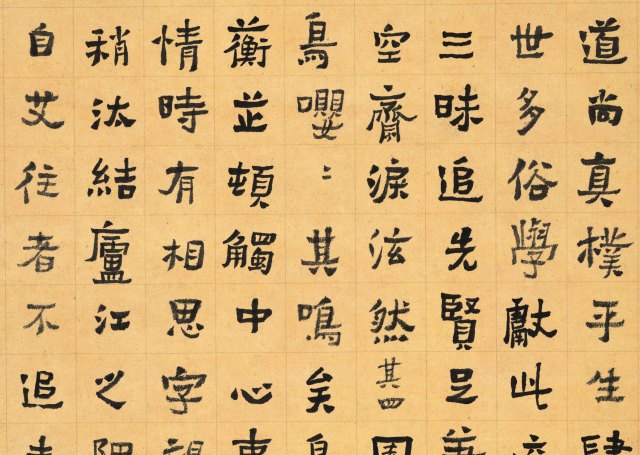 道尚真樸平生
世多俗學獻此
三昧追先賢足
空齋淚泫然其四
鳥嚶〻其鳴矣
蘅芷頓觸中心
情時有相思字
稍汰結廬江之
自艾往者不追